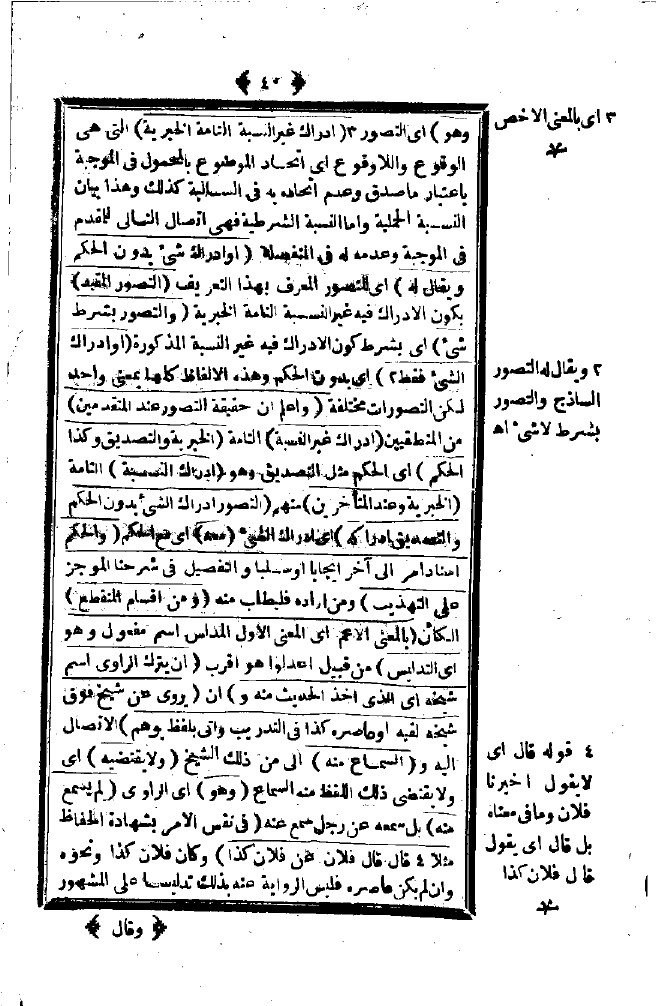 ﴿ ٤٠ ﴾
وهو ) اى التصور ٣ ( ادراك غير النسبة التامة الخبرية ) التى هى
الوقوع واللاوقوع اى اتحاد الموضوع بالمحمول فى الموجبة
باعتبار ماصدق وعدم اتحاده به فى السالبة كذلك وهذا بيان
النسبة الحملية واما النسبة الشرطية فهى اتصال التالى للمقدم
فى الموجبة وعدمه له فى المنفصلة ( او ادراك شئ بدون الحكم
ويقال له ) اى للتصور المعرف بهذا التعريف ( التصور المقيد )
بكون الادراك فيه غير النسبة التامة الخبرية ( والتصور بشرط
شئ ) اى بشرط كون الادراك فيه غير النسبة المذكورة ( او ادراك
الشئ فقط ٢ ) اى بدون الحكم وهذه الالفاظ كلها بمعنى واحد
لكن التصورات مختلفة ( واعلم ان حقيقة التصور عند المتقدمين )
من المنطقيين ( ادراك غير النسبة ) التامة ( الخبرية والتصديق وكذا
الحكم ) اى الحكم مثل التصديق وهو ( ادراك النسبة ) التامة
( الخبرية وعند المتأخرين ) منهم ( التصور ادراك الشئ بدون الحكم
والتصديق ادراكه ) اى ادراك الشئ ( معه ) اى مع الحكم ( والحكم
اسناد امر الى آخر ايجابا او سلبا و التفصيل فى شرحنا الموجز
على التهذيب ) ومن اراده فليطلب منه ( ومن اقسام المنقطع )
الكائن ( بالمعنى الاعم اى المعنى الأول المدلس اسم مفعول وهو
اى التدليس ) من قبيل اعدلوا هو اقرب ( ان يترك الراوى اسم
شيخه اى الذى اخذ الحديث منه و ) ان ( يروى عن شيخ فوق
شيخه لقيه او عاصره كذا فى التدريب واتى بلفظ يوهم ) الاتصال
اليه و ( السماع منه ) الى من ذلك الشيخ ( ولا يقتضيه ) اى
ولا يقتضى ذلك اللفظ منه السماع ( وهو ) اى الراوى ( لم يسمع
منه ) بل سمعه عن رجل سمع عنه ( فى نفس الامر بشهادة الحفاظ
مثلا ٤ قال قال فلان عن فلان كذا ) وكان فلان كذا ونحوه
وان لم يكن عاصره فليس الرواية عنه بذلك تدليسا على المشهور
﴿ وقال ﴾
٣ اى بالمعنى الاخص
٢ ويقال له التصور
الساذج والتصور
بشرط لاشئ اه
٤ قوله قال اى
لايقول اخبرنا
فلان وما فى معناه
بل قال اى يقول
قال فلان كذا